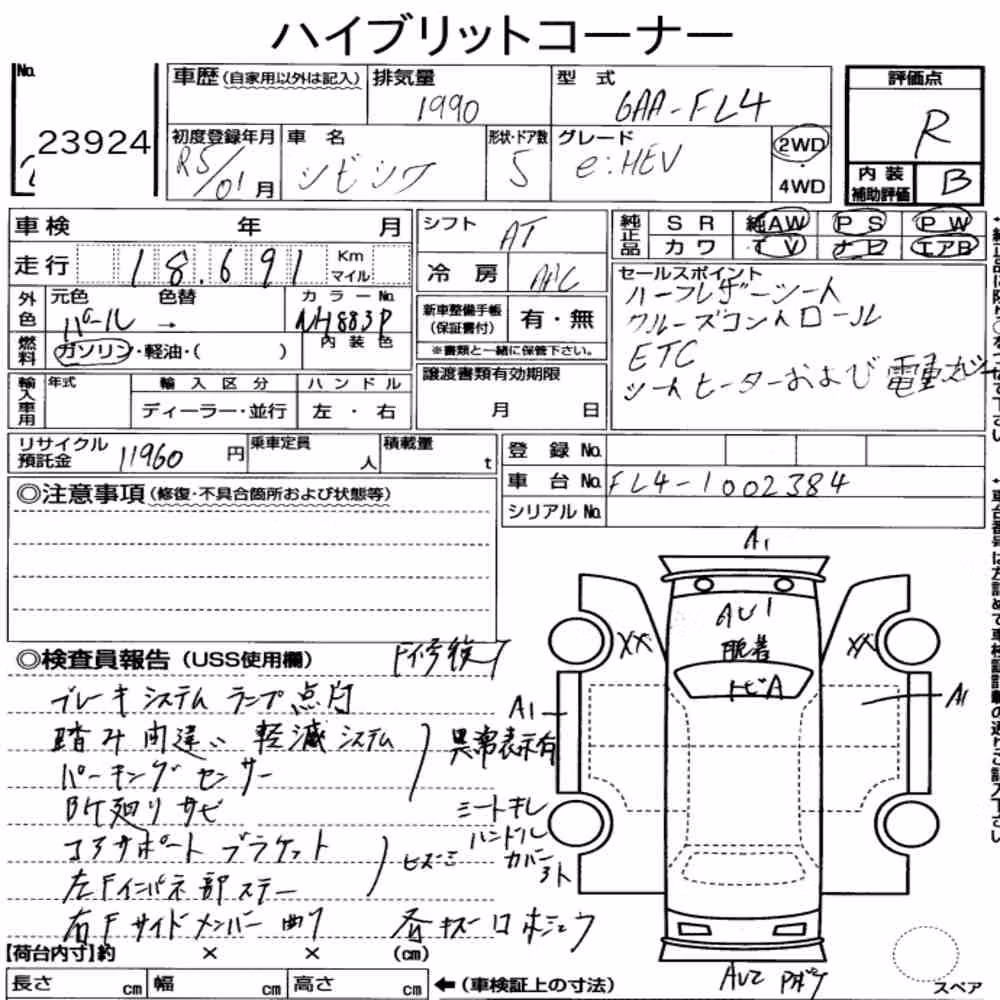 ハイブリットコーナー
No.
23924
車歴（自家用以外は記入）
排気量
1990
型 式
6AA-FL4
評価点
R
初度登録年月
R5/01月
車 名
シビック
形状・ドア数
5
グレード
e:HEV
2WD
4WD
内 装
補助評価
B
車検 年 月
シフト
AT
純正品
S R 純AW P S P W
カ ワ T V ナビ エアB
走行 18.691 Km マイル
冷 房
AAC
セールスポイント
ハーフレザーシート
クルーズコントロール
ETC
シートヒーターおよび電動
外色
元色 色替
パール →
カラーNo.
NH883P
内 装 色
新車整備手帳
（保証書付）
有・無
※書類と一緒に保管下さい。
燃料
ガソリン・軽油・( )
譲渡書類有効期限
月 日
輸入車用
年式
輸 入 区 分
ディーラー・並行
ハ ン ド ル
左 ・ 右
リサイクル
預託金
11960 円
乗車定員
人
積載量
t
登 録 No.
車 台 No. FL4-1002384
シリアル No.
◎注意事項（修復・不具合箇所および状態等）
◎検査員報告（USS使用欄）
F修復了
ブレーキシステムランプ点灯
踏み間違い軽減システム
パーキングセンサー
異常表示有
B下廻りサビ
コアサポートブラケット
左Fインパネ部ステー
ヒズミ
シートキレ
ハンドル
カバー
右Fサイドメンバー曲り
A1
AU1
脱着
トビA
XX
XX
A1
A1
AU2
スペア
【荷台内寸】約 × × （cm）
長さ cm 幅 cm 高さ cm
←（車検証上の寸法）